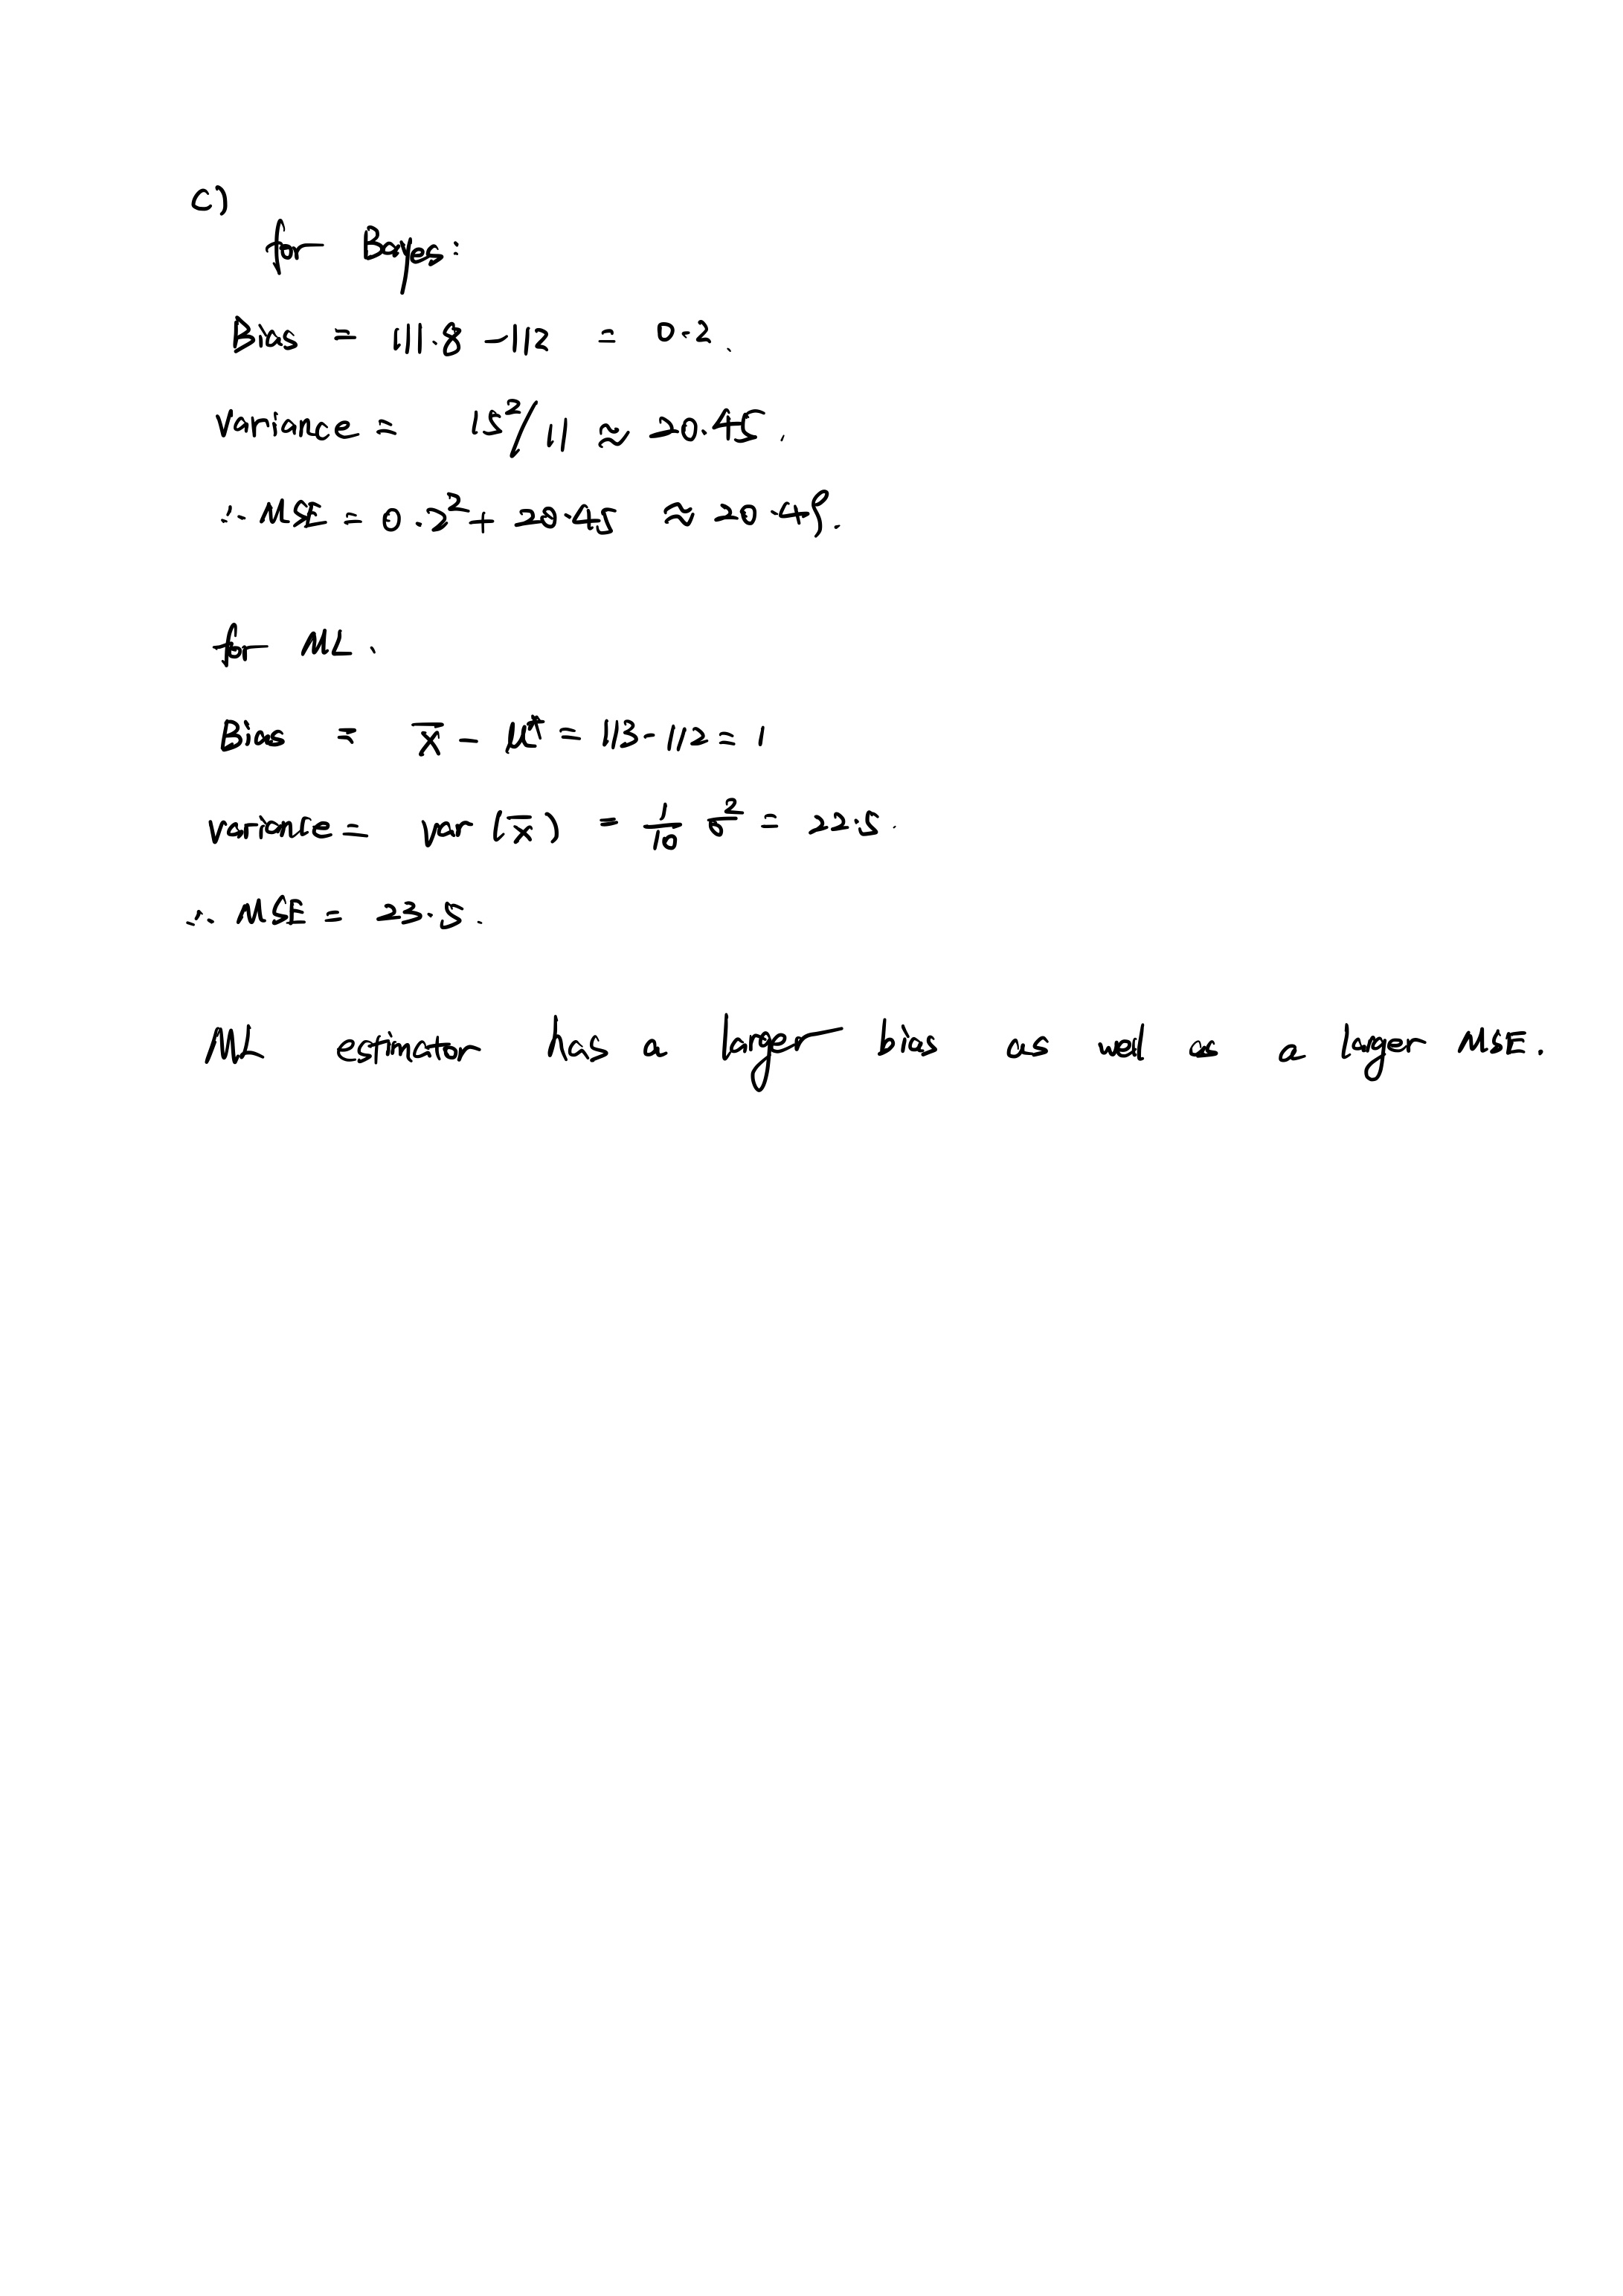 c)
for Bayes:
Bias = 111.8 - 112 = 0.2.
Variance = 15²/11 ≈ 20.45.
∴ MSE = 0.2² + 20.45 ≈ 20.49.
for ML.
Bias = x̄ - μ* = 113 - 112 = 1
variance = var (x̄) = 1/10 σ² = 22.5.
∴ MSE = 23.5.
ML estimator has a larger bias as well as a larger MSE.